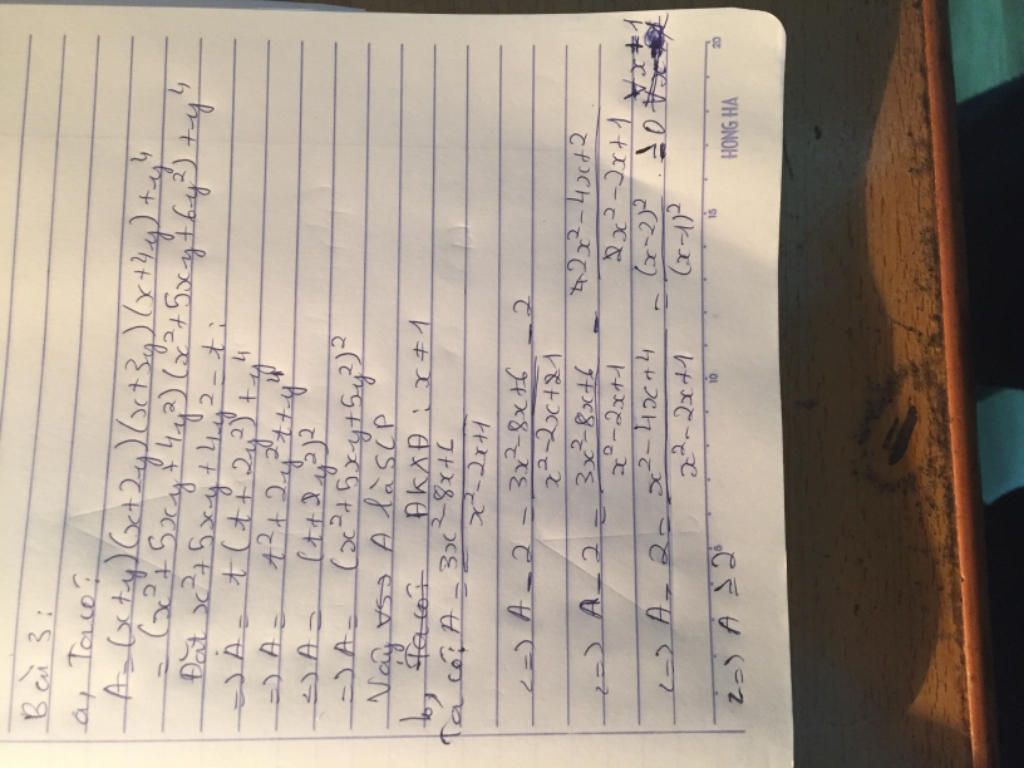 Bài 3:
a, Ta có:
A = (x+y)(x+2y)(x+3y)(x+4y)+y⁴
= (x²+5xy+4y²)(x²+5xy+6y²)+y⁴
Đặt x²+5xy+4y² = t:
=> A = t(t+2y²)+y⁴
=> A = t²+2y²t+y⁴
=> A = (t+y²)²
=> A = (x²+5xy+5y²)²
Vậy A là SCP
b, ĐKXĐ: x≠1
Ta có: A = \frac{3x²-8x+6}{x²-2x+1}
<=> A-2 = \frac{3x²-8x+6}{x²-2x+1} - 2
<=> A-2 = \frac{3x²-8x+6}{x²-2x+1} - \frac{2x²-4x+2}{x²-2x+1}
<=> A-2 = \frac{x²-4x+4}{x²-2x+1} = \frac{(x-2)²}{(x-1)²} ≥ 0 ∀x≠1
<=> A ≥ 2
5 10 15 20
HONG HA